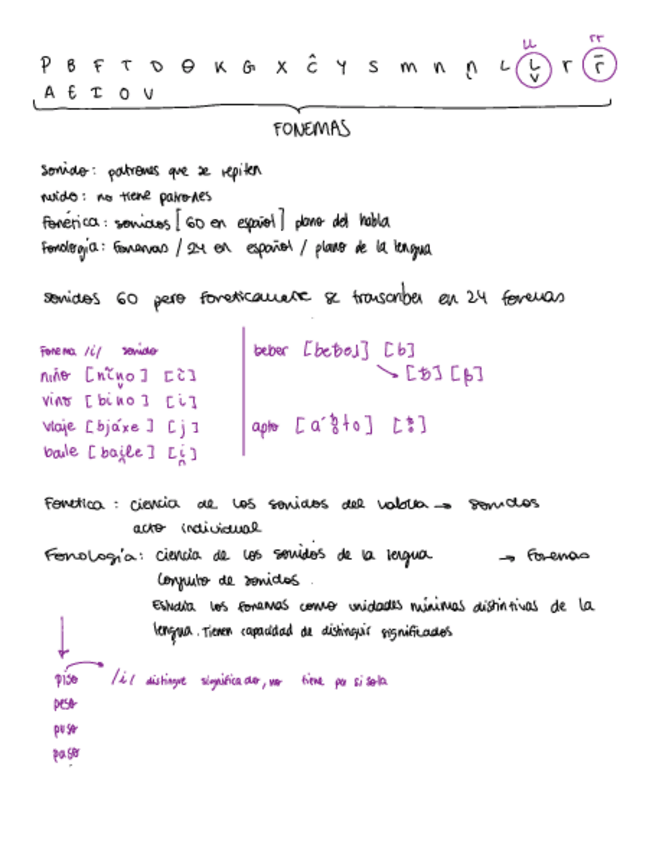 ll rr
P B F T D Θ K G X Ĉ Y S m n ņ L Ḽ r r̄
A E I O U
FONEMAS
Sonido: patrones que se repiten
ruido: no tiene patrones
Fonética: sonidos [60 en español] plano del habla
Fonología: fonemas / 24 en español / plano de la lengua
sonidos 60 pero foneticamente se transcriben en 24 fonemas
Fonema /i/ sonido
niño [nĩņo] [ĩ]
vino [bino] [i]
viaje [bjáxe] [j]
baile [bai̯le] [i̯]
beber [b]
[ƀ] [β]
apto
Fonética: ciencia de los sonidos del → sonidos
acto individual
Fonología: ciencia de los sonidos de la lengua → Fonemas
Conjunto de sonidos.
Estudia los fonemas como unidades mínimas distintivas de la
lengua. Tienen capacidad de distinguir significados
piso /i/ distingue significador, no tiene por si sola
peso
puso
paso